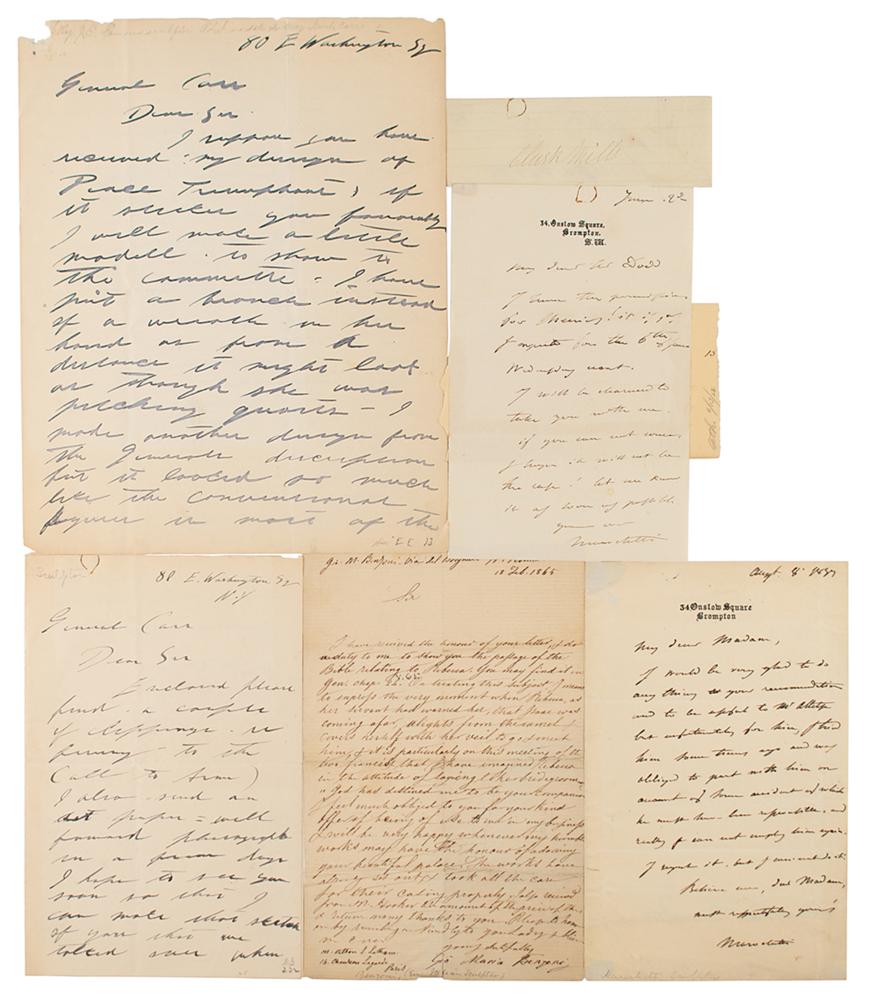 80 E Washington Sq
General Carr
Dear Sir
I suppose you have
received my design of
Peace Triumphant; if
it strikes you favorably
I will make a little
modell to show to
the committe - I have
put a branch instead
of a wreath in her
hand as from a
distance it might look
as though she was
pitching quoits - I
made another design from
the Generals discription
but it looked so much
like the conventional
figures in most of the
EE 13
Clark Mills
June 2d
34, Onslow Square,
Brompton.
S.W.
My dear Mr Dodd
I have the permission
for
for the 6th of June
Wednesday next.
I will be charmed to
take you with me.
if you can not come
I hope it will not be
the case! let me know
it as soon as possible
yours ever
Marochetti
13
Sculptor
80 E. Washington Sq
N.Y
General Carr
Dear Sir
Enclosed please
find a couple
of clippings in
to the
Call to Arms)
I also send an
paper = will
forward photograph
in a few days
I hope to see you
soon so that I
can make that sketch
of you that we
talked over when
Gio. M. Benzoni. Via del
18 Feb. 1865
Sir
I have received the honour of your letter, & do
a duty to me to show you the passage of the
Bible relating to Rebecca. You may find it in
Gen. chap. In treating this subject I meant
to express the very moment when Rebecca, as
her servant had warned her, that Isaac was
coming afar, alights from the camel &
covers herself with her veil to go & meet
him; & it is particularly on this meeting of the
two fiancés that I have imagined Rebecca
in the attitude of saying to the bridegroom
"God has destined me to be your companion
I feel much obliged to you for your kind
offer of being of use to me in my business
& I will be very happy whenever my humble
works may have the honour of adorning
your beautiful palace. The works have
already set out & I took all the care
for their casing properly. I also received
from Mr. Hooker the amount of the price of them
& return many thanks to you. Please to honor
me by
yours faithfully
Gio Maria Benzoni
Paris
Augt 8
34 Onslow Square
Brompton
My dear Madam,
I would be very glad to do
any thing at your recommendation
and to be useful to Mr
but unfortunately for him, I tried
him some times ago and was
obliged to part with him on
account of some accident of which
he must have been responsible, and
really I can not employ him again.
I regret it, but I can not do it.
Believe me, dear Madam,
most respectfully yours
Marochetti